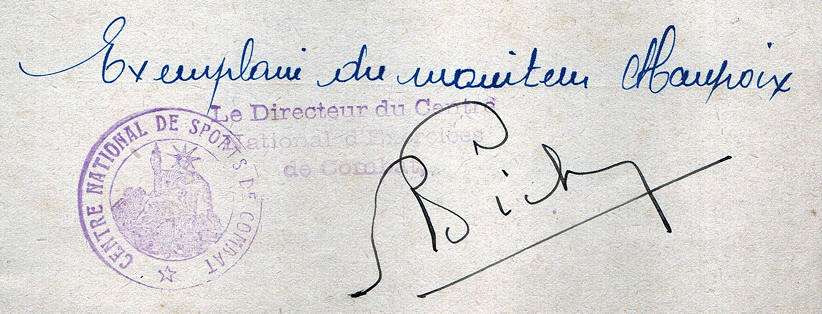 Exemplaire du moniteur Maupoix
Le Directeur du Centre
National d'Exercices
de Combat.
CENTRE NATIONAL DE SPORTS DE COMBAT